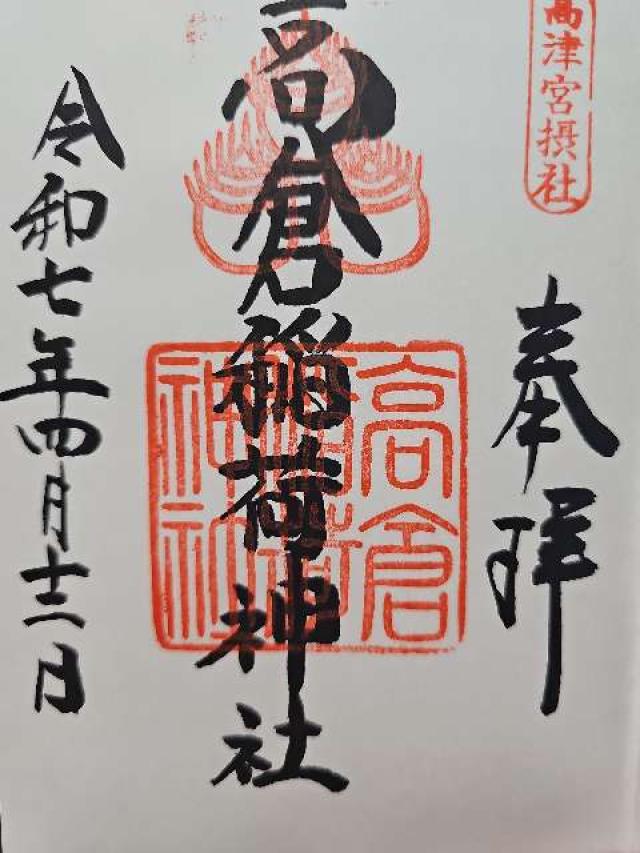 高津宮摂社
奉拝
高倉稲荷神社
高倉
稲荷
神社
令和七年四月十二日